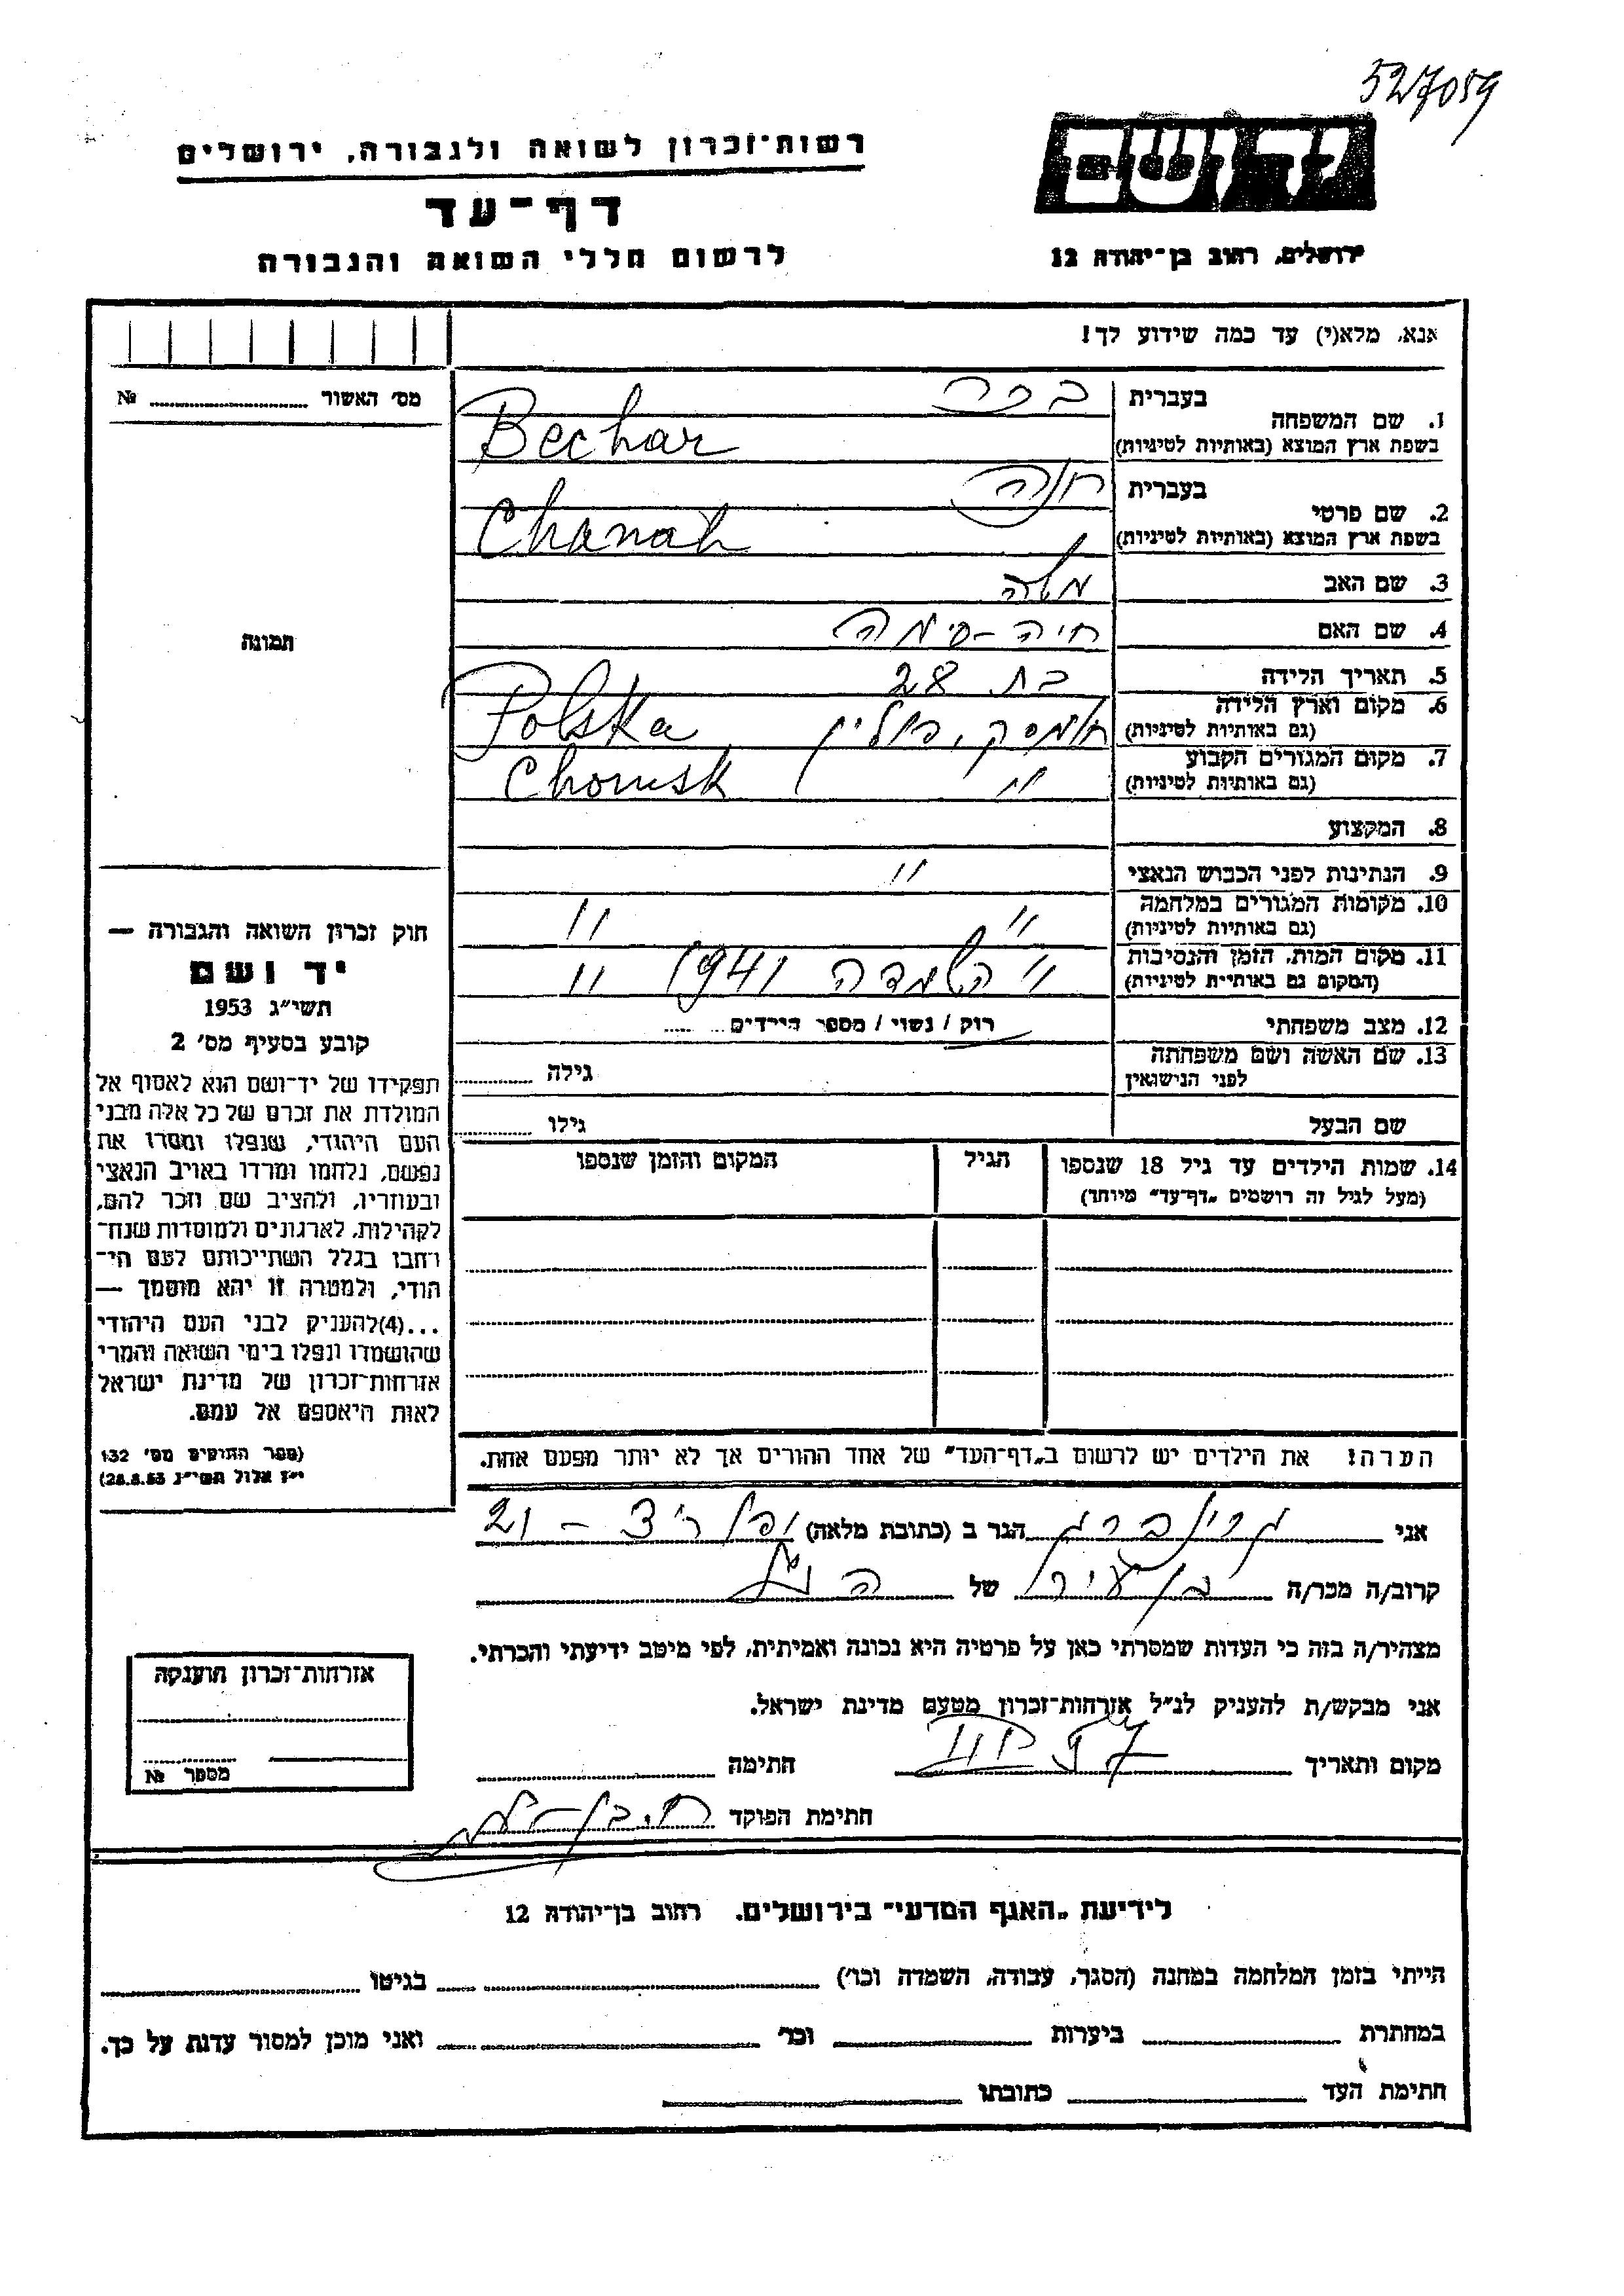 527059
רשות־זכרון לשואה ולגבורה, ירושלים
יד ושם
דף־עד
לרשום חללי השואה והגבורה
ירושלים, רחוב בן־יהודה 12
אנא, מלא(י) עד כמה שידוע לך!
מס' האשור № 
1. שם המשפחה
בעברית בכר
בשפת ארץ המוצא (באותיות לטיניות) Bechar
2. שם פרטי
בעברית חנה
בשפת ארץ המוצא (באותיות לטיניות) Chanah
3. שם האב משה
4. שם האם חיה-סימה
תמונה
5. תאריך הלידה בת 28
6. מקום וארץ הלידה
(גם באותיות לטיניות) חומסק, פולין Polska
7. מקום המגורים הקבוע
(גם באותיות לטיניות) " Chomsk
8. המקצוע
9. הנתינות לפני הכבוש הנאצי "
10. מקומות המגורים במלחמה
(גם באותיות לטיניות) " "
11. מקום המות, הזמן והנסיבות
(המקום גם באותיות לטיניות) " השמדה 1941 "
12. מצב משפחתי רוק / נשוי / מספר הילדים
13. שם האשה ושם משפחתה
לפני הנישואין גילה
שם הבעל גילו
14. שמות הילדים עד גיל 18 שנספו הגיל המקום והזמן שנספו
(מעל לגיל זה רושמים „דף־עד" מיוחד)
הערה! את הילדים יש לרשום ב„דף־העד" של אחד ההורים אך לא יותר מפעם אחת.
חוק זכרון השואה והגבורה —
יד ושם
תשי"ג 1953
קובע בסעיף מס' 2
תפקידו של יד־ושם הוא לאסוף אל
המולדת את זכרם של כל אלה מבני
העם היהודי, שנפלו ומסרו את
נפשם, נלחמו ומרדו באויב הנאצי
ובעוזריו, ולהציב שם וזכר להם,
לקהילות, לארגונים ולמוסדות שנח־
רחבו בגלל השתייכותם לעם הי־
הודי, ולמטרה זו יהא מוסמך —
...(4)להעניק לבני העם היהודי
שהושמדו ונפלו בימי השואה והמרי
אזרחות־זכרון של מדינת ישראל
לאות היאספם אל עמם.
(ספר החוקים מס' 132
י"ז אלול תשי"ג 28.8.53)
אני גרינברג הגר ב (כתובת מלאה) 21
קרוב/ה מכר/ה בן עיר של הנ"ל
מצהיר/ה בזה כי העדות שמסרתי כאן על פרטיה היא נכונה ואמיתית, לפי מיטב ידיעתי והכרתי.
אני מבקש/ת להעניק לנ"ל אזרחות־זכרון מטעם מדינת ישראל.
מקום ותאריך חתימה
חתימת הפוקד
אזרחות־זכרון הוענקה
מספר №
לידיעת „האגף המדעי" בירושלים. רחוב בן־יהודה 12
הייתי בזמן המלחמה במחנה (הסגר, עבודה, השמדה וכו') בגיטו
במחתרת ביערות וכו' ואני מוכן למסור עדות על כך.
חתימת העד כתובתו